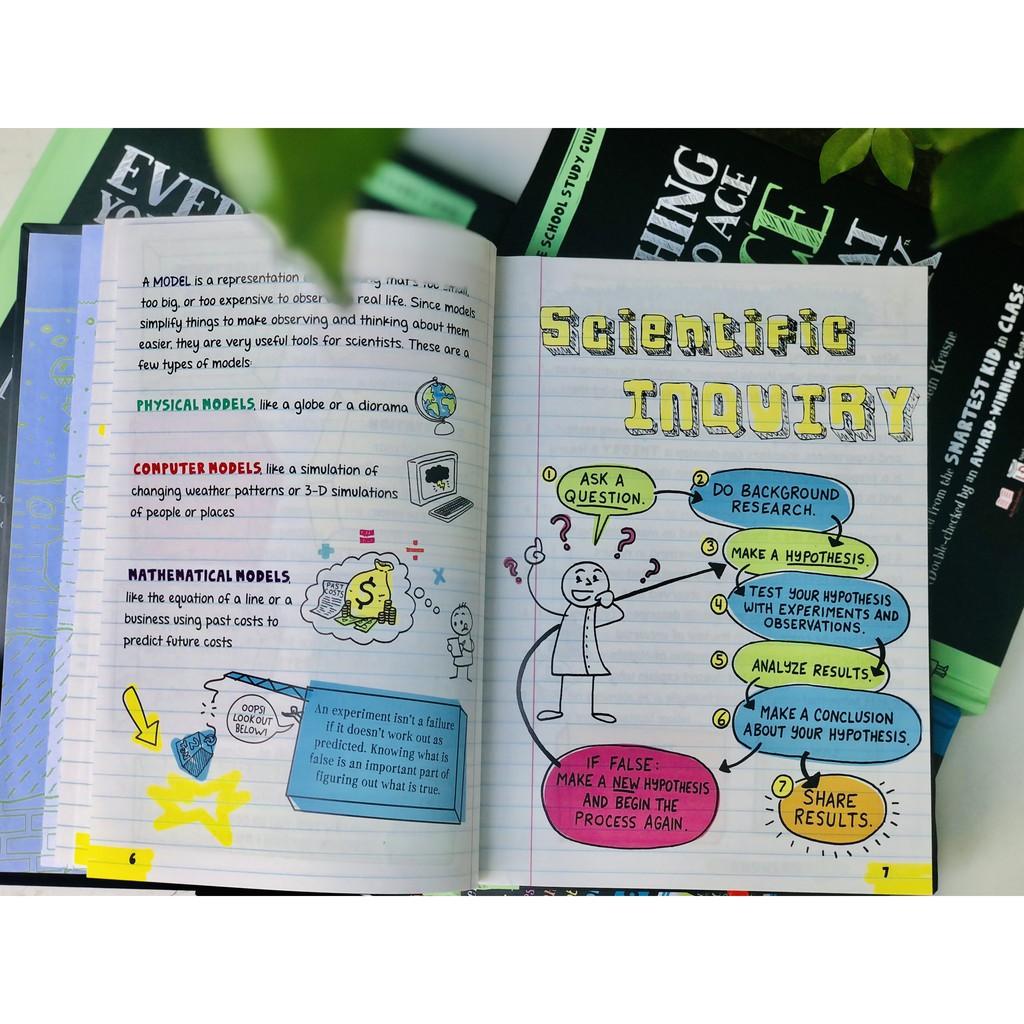 EVER
YO
SCHOOL STUDY GUID
HING
O ACE
CE
AT
n Krasne
from the SMARTEST KID in CLASS
(Double-checked by an AWARD-WINNING
A MODEL is a representation that's too small,
too big, or too expensive to observe real life. Since models
simplify things to make observing and thinking about them
easier, they are very useful tools for scientists. These are a
few types of models:
PHYSICAL MODELS, like a globe or a diorama
COMPUTER MODELS, like a simulation of
changing weather patterns or 3-D simulations
of people or places
MATHEMATICAL MODELS,
like the equation of a line or a
business using past costs to
predict future costs
PAST
COSTS
$
OOPS!
LOOK OUT
BELOW!
An experiment isn't a failure
if it doesn't work out as
predicted. Knowing what is
false is an important part of
figuring out what is true.
6
Scientific
INQUIRY
1 ASK A
QUESTION.
2 DO BACKGROUND
RESEARCH.
3 MAKE A HYPOTHESIS.
4 TEST YOUR HYPOTHESIS
WITH EXPERIMENTS AND
OBSERVATIONS.
5 ANALYZE RESULTS.
6 MAKE A CONCLUSION
ABOUT YOUR HYPOTHESIS.
IF FALSE:
MAKE A NEW HYPOTHESIS
AND BEGIN THE
PROCESS AGAIN.
7 SHARE
RESULTS.
7